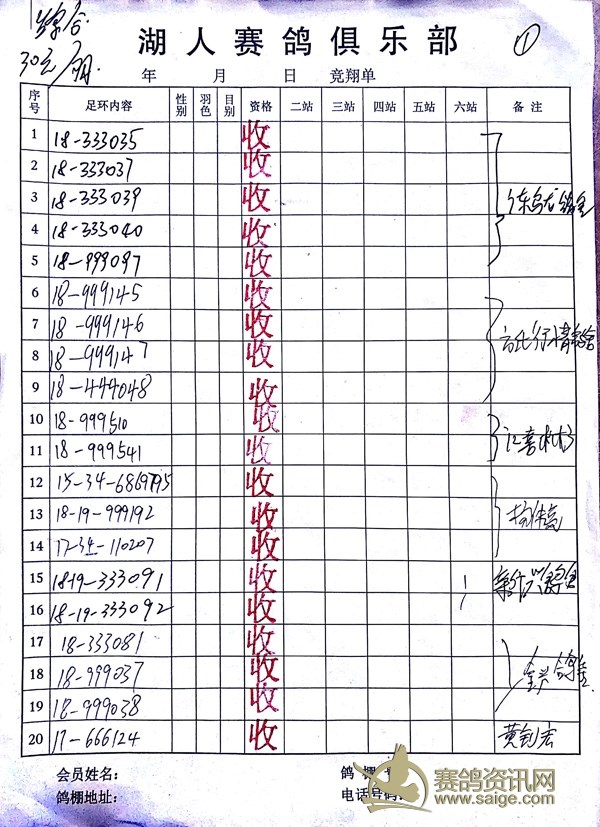 30元/羽
湖人赛鸽俱乐部
①
年 月 日 竞翔单
序号 足环内容 性别 羽色 目别 资格 二站 三站 四站 五站 六站 备注
1 18-333035 收
2 18-333037 收
3 18-333039 收
4 18-333040 收
5 18-999097 收
6 18-999145 收
7 18-999146 收
8 18-999147 收
9 18-444048 收
10 18-999510 收
11 18-999541 收
12 收
13 18-19-999192 收
14 17-34-110207 收
15 1819-333091 收
16 18-19-333092 收
17 18-333081 收
18 18-999037 收
19 18-999038 收
20 17-666124 收 黄剑宏
会员姓名: 鸽棚
鸽棚地址: 电话号码:
赛鸽资讯网
www.saige.com